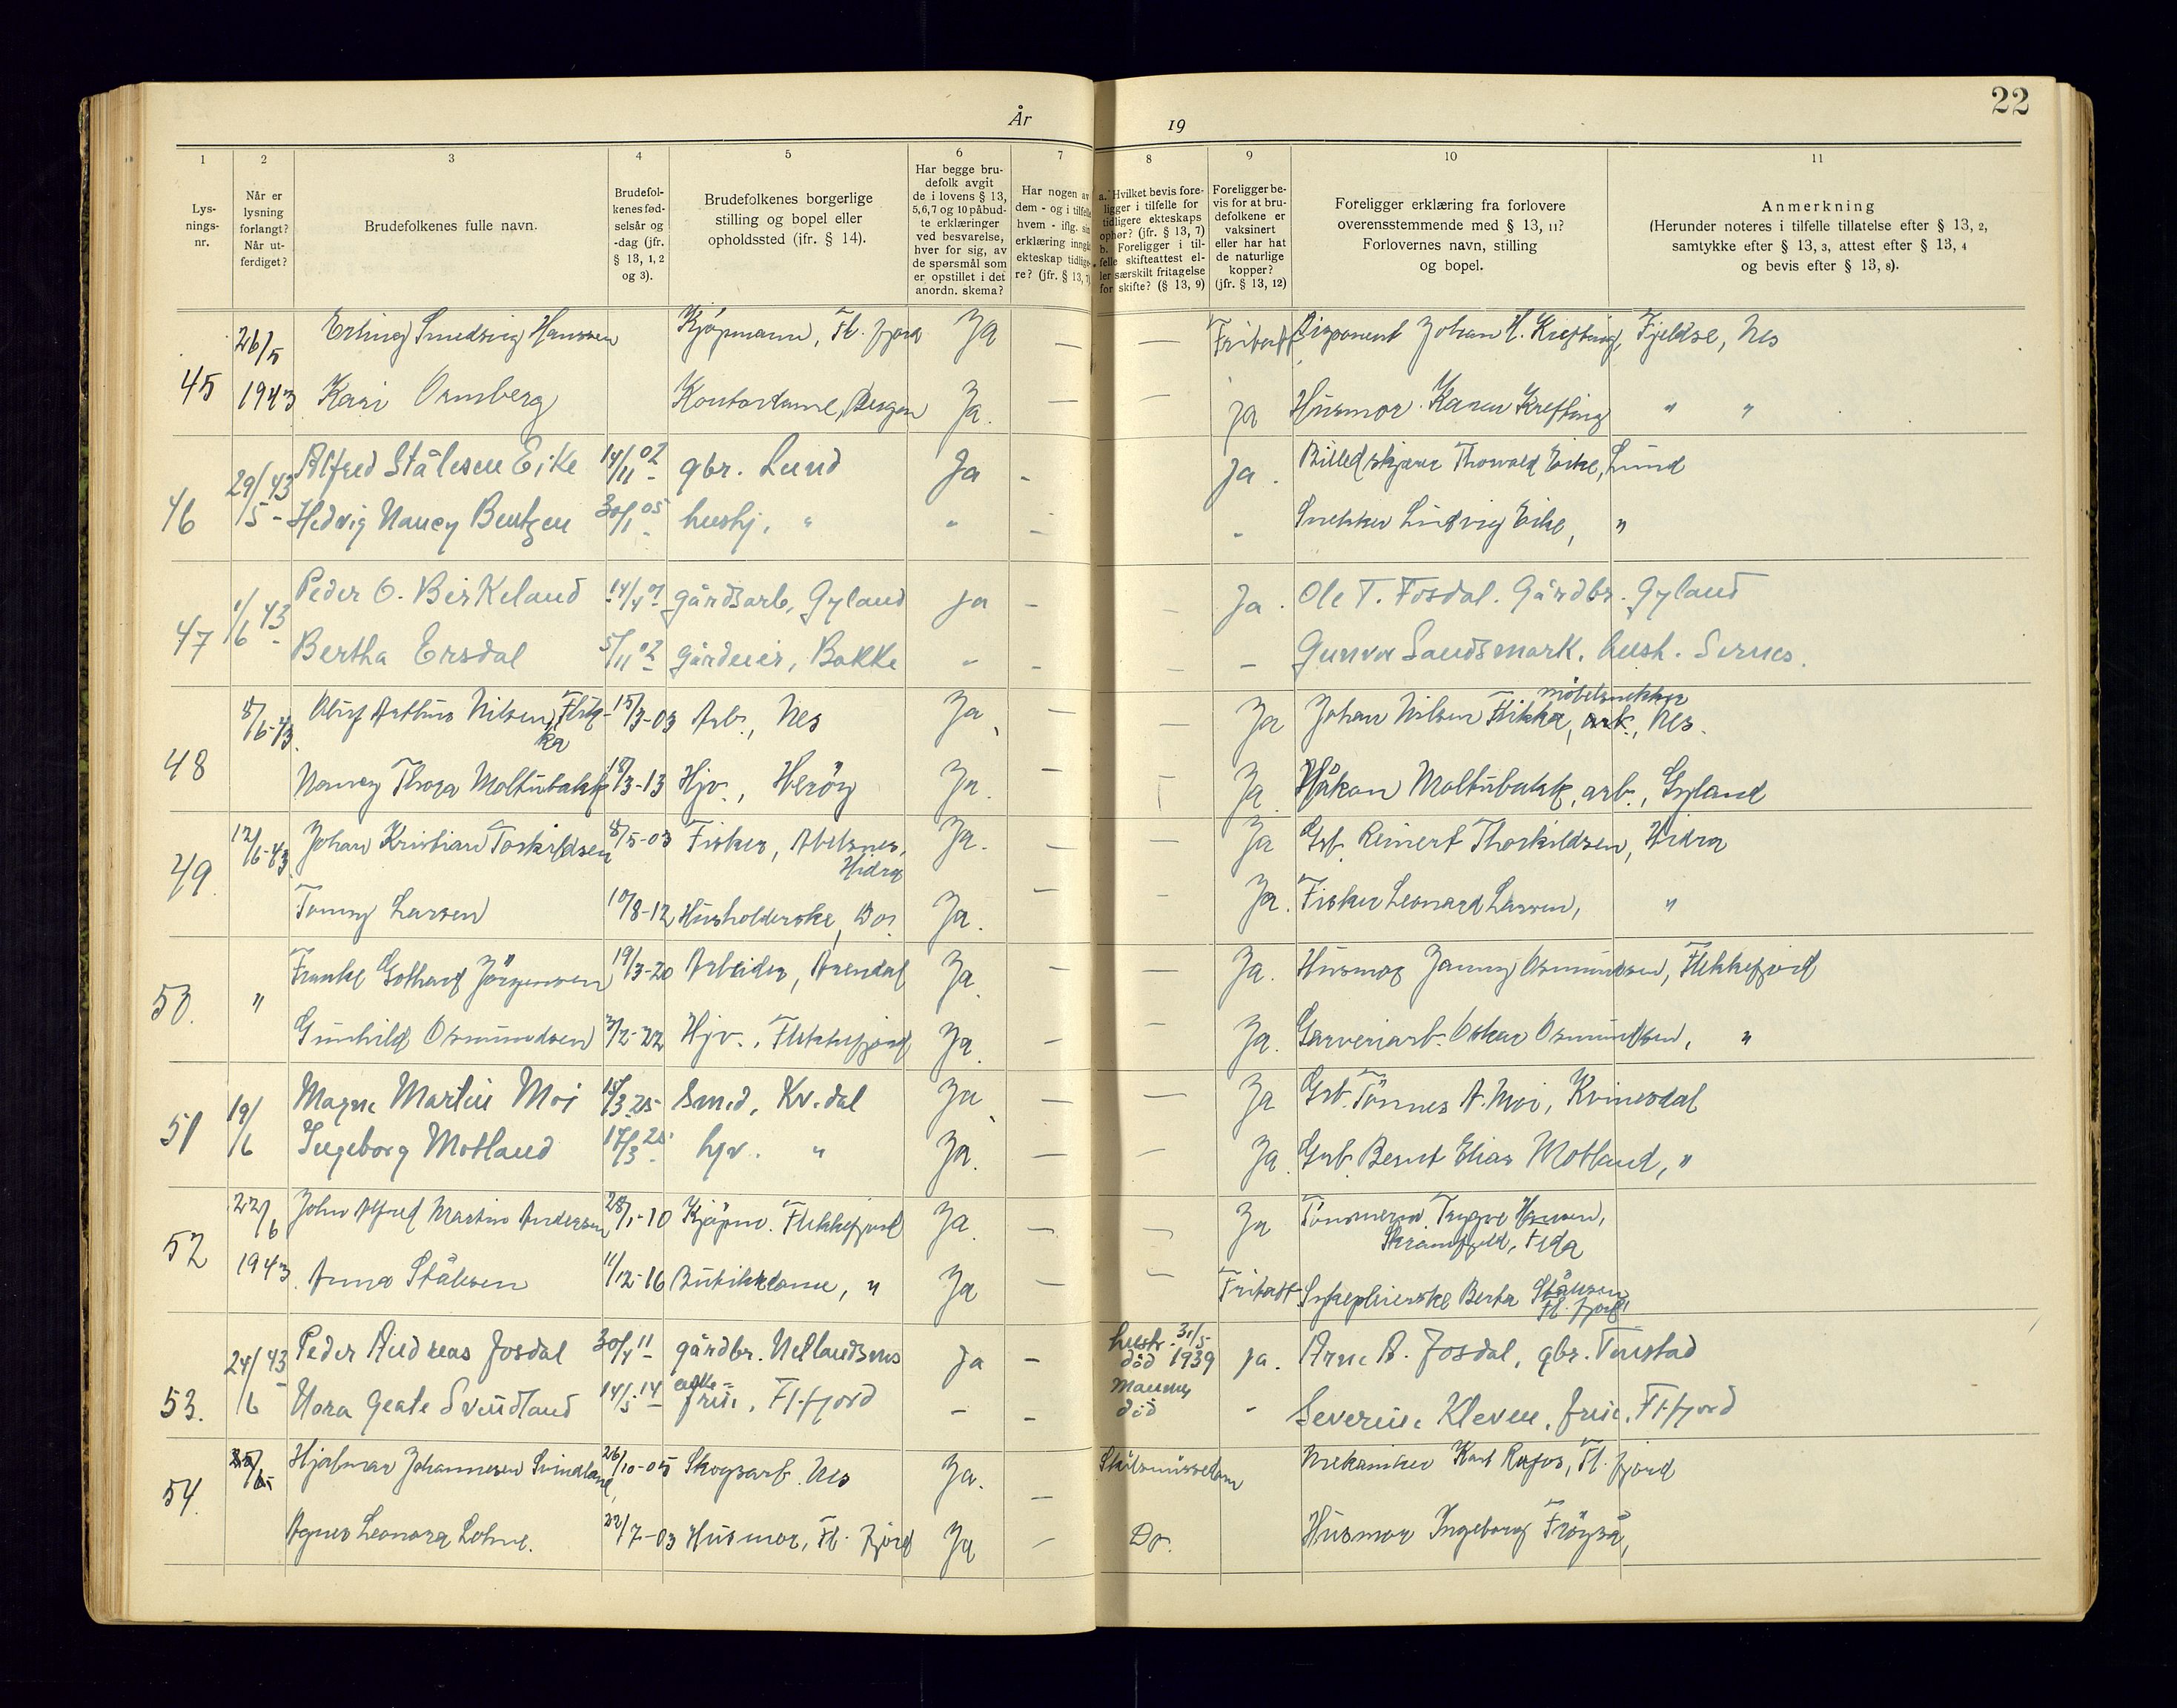 22
År 19
1 2 3 4 5 6 7 8 9 10 11
Lysnings-nr.
Når er lysning forlangt? Når utferdiget?
Brudefolkenes fulle navn.
Brudefolkenes fødselsår og -dag (jfr. § 13, 1, 2 og 3).
Brudefolkenes borgerlige stilling og bopel eller opholdssted (jfr. § 14).
Har begge brudefolk avgit de i lovens § 13, 5, 6, 7 og 10 påbudte erklæringer ved besvarelse, hver for sig, av de spørsmål som er opstillet i det anordn. skema?
Har nogen av dem - og i tilfelle hvem - iflg. sin erklæring inngått ekteskap tidligere? (jfr. § 13, 7)
a. Hvilket bevis foreligger i tilfelle for tidligere ekteskaps ophør? (jfr. § 13, 7) b. Foreligger i tilfelle skifteattest eller særskilt fritagelse for skifte? (§ 13, 9)
Foreligger bevis for at brudefolkene er vaksinert eller har hat de naturlige kopper? (jfr. § 13, 12)
Foreligger erklæring fra forlovere overensstemmende med § 13, 11? Forlovernes navn, stilling og bopel.
Anmerkning (Herunder noteres i tilfelle tillatelse efter § 13, 2, samtykke efter § 13, 3, attest efter § 13, 4 og bevis efter § 13, 8).
45 26/5 Erling Smedsvig Hanssen Kjøpmann, Fl. fjord Ja — — Fritatt Disponent Johan H. Krefting, Fjeldse, Nes
1943 Kari Omsberg Kontordame, Bergen Ja. — — ja Husmor Karen Krefting " "
46 29/5 43 Alfred Stålesen Eike 14/11 02 gbr. Lund Ja - Ja. Billedskjærer Thorvald Eike, Lund
Hedvig Nancy Bentzen 30/1 05 hushj. " " - - Snekker Ludvig Eike, "
47 1/6 43 Peder O. Birkeland 14/4 07 gårdsarb, Gyland ja - - Ja. Ole T. Fosdal. Gårdbr. Gyland
Bertha Ersdal 5/11 02 gårdeier, Bakke " - - - Gunvor Sandsmark. hush. Sirnes.
48 8/6-43 Oluf Arthur Nilsen Flikka 15/3-03 Arb., Nes Ja — — Ja Johan Nilsen Flikka, møbelsnekker, Nes.
Nancy Thora Moltubakk 18/3-13 Hjv., Herøy Ja. — - Ja. Håkon Moltubakk, arb., Gyland
49. 12/6-43. Johan Kristian Torkildsen 8/5-03 Fisker, Abelsnes, Hidra Ja. — — Ja Grb. Reinert Thorkildsen, Hidra
Tonny Larsen 10/8-12 Husholderske, Do. Ja. — — Ja. Fisker Leonard Larsen, "
50. " Frank Gothard Jörgensen 19/3-20 Arbeider, Arendal Ja. — — Ja. Husmor Janny Osmundsen, Flekkefjord
Gunhild Osmundsen 3/2-22 Hjv., Flekkefjord Ja. — — Ja. Garveriarb. Oskar Osmundsen, "
51 19/6 Magne Martin Moi 15/3 25 Smed, Kv.dal Ja — — Ja Grb. Tönnes A. Moi, Kvinesdal
Ingeborg Motland 17/3 25 hjv. " Ja. — — Ja. Grb. Bernt Elias Motland, "
52 22/6 John Alfred Martin Andersen 28/1-10 Kjøpm. Flekkefjord Ja. — — Ja Tömmerm. Trygve Hansen, Feda
1943 Anna Stålesen 11/12-16 Butikkdame, " Ja — — Fritatt Sykepleierske Berta Stålesen Fl. fjord
53. 24/6 43 Peder Andreas Josdal 30/4 11 gårdbr. Netlandsnes ja - hustr. død 31/5 1939 ja. Arne A. Josdal, gbr. Tonstad
Nora Geate Svindland 14/5 14 enkefrue, Fl.fjord - - Mannen død - Severine Kleven, frue, Fl.fjord
54. Hjalmar Johannesen Svindland 26/10-05 Skogsarb. Nes Ja. — Skilsmissedom Mekaniker Karl Refos, Fl. fjord
Agnes Leonora Lohne. 22/7-03 Husmor, Fl. fjord Ja — Do. Husmor Ingeborg Fröyså,